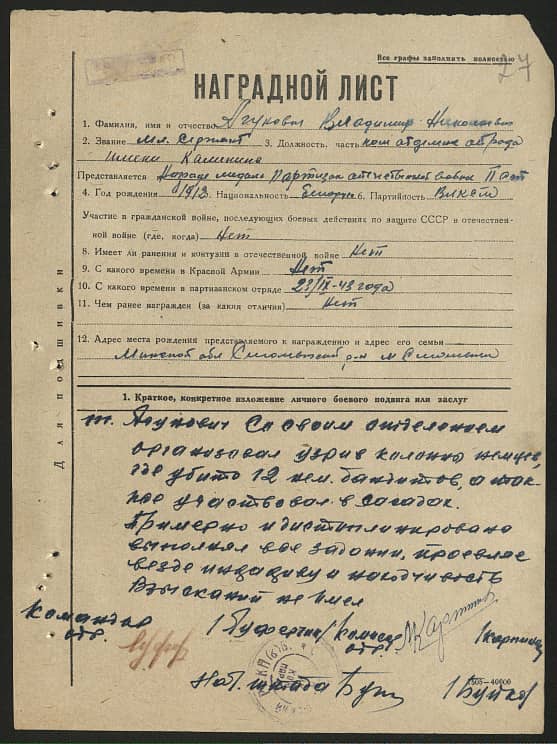 Все графы заполнить полностью
27
НАГРАДНОЙ ЛИСТ
1. Фамилия, имя и отчество Ягукович Владимир Николаевич
2. Звание Мл. Сержант 3. Должность, часть ком отделен отряда
имени Калинина
Представляется Награде медали Партизан отечественной войны II ст
4. Год рождения 1912 5. Национальность 6. Партийность ВЛКСМ
Участие в гражданской войне, последующих боевых действиях по защите СССР в отечествен-
ной войне (где, когда) Нет
8. Имеет ли ранения и контузии в отечественной войне Нет
9. С какого времени в Красной Армии Нет
10. С какого времени в партизанском отряде 23/IX-43 года
11. Чем ранее награжден (за какия отличия) Нет
12. Адрес места рождения представляемого к награждению и адрес его семьи
Минской обл Смолевичский р-н м Смолевичи
Для подшивки
1. Краткое, конкретное изложение личного боевого подвига или заслуг
т. Ягукович Со своим отделением
организовал узрив колонны немцев,
где убито 12 нем. бандитов, а так-
же участвовал в засадах.
Примерно и дистиплинировано
выполнял все задании, проевляе
везде и находчивость
Взысканий не имел
Командир
отр. Комисар
отр.
Нач. штаба